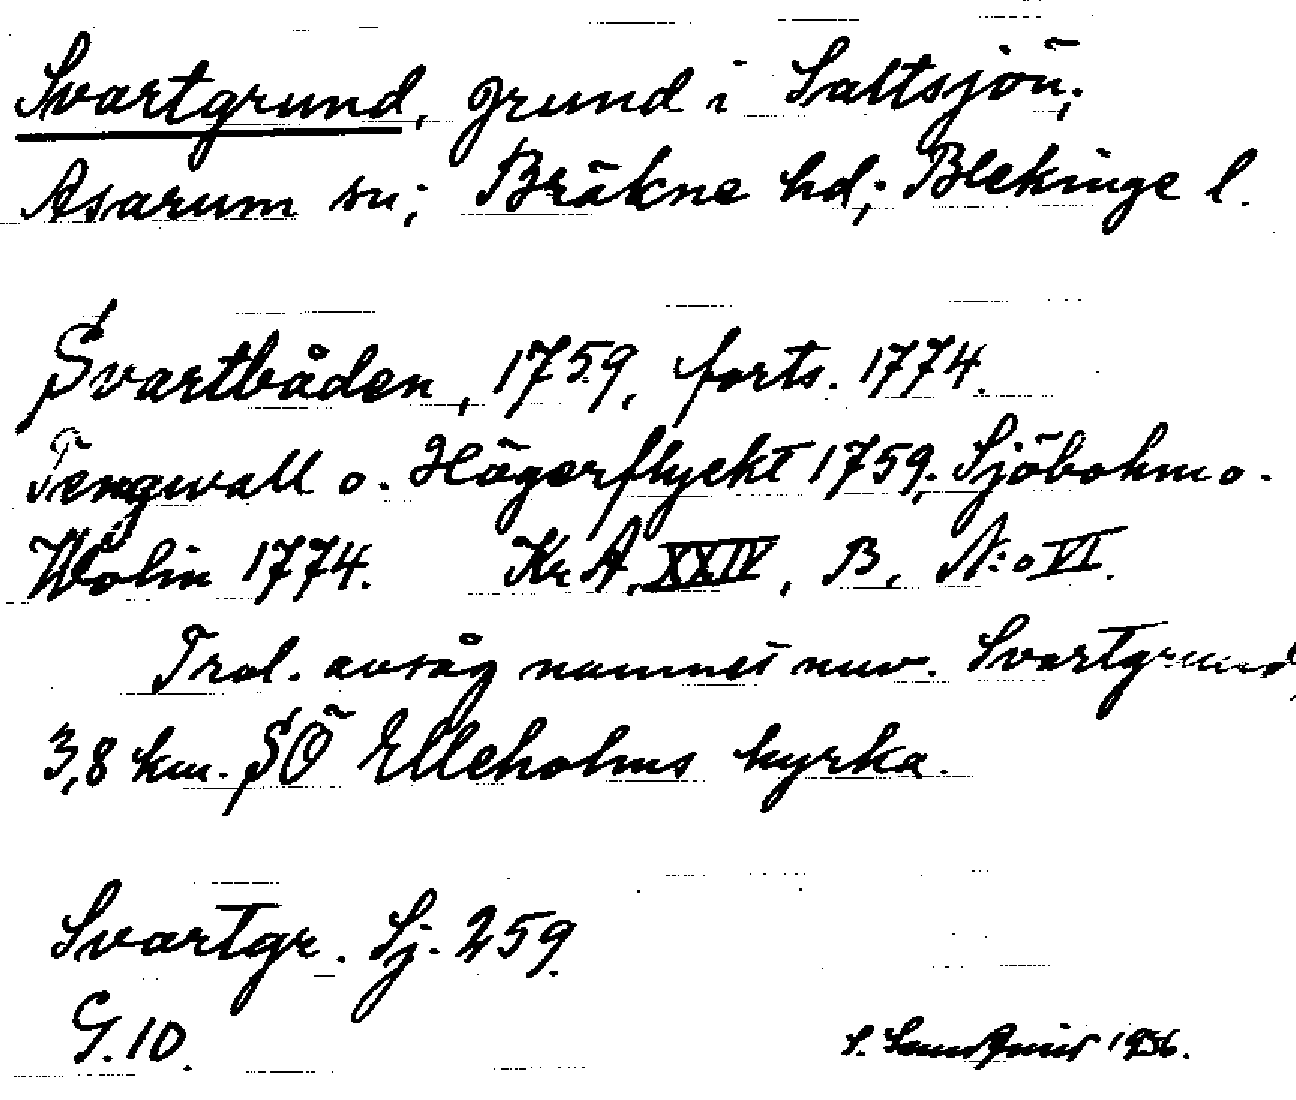 Svartgrund, grund i Saltsjön;
Asarum sn; Bräkne hd; Blekinge l.
Svartbåden, 1759, forts. 1774.
Tengwall o. Högerflyckt 1759; Sjöbohm o.
Wölin 1774. Kr.A. XXIV, B, N:o VI.
Trol. avsåg namnet nuv. Svartgrund,
3,8 km. SÖ Elleholms kyrka.
Svartgr. Sj. 259.
G. 10.
S. 1936.